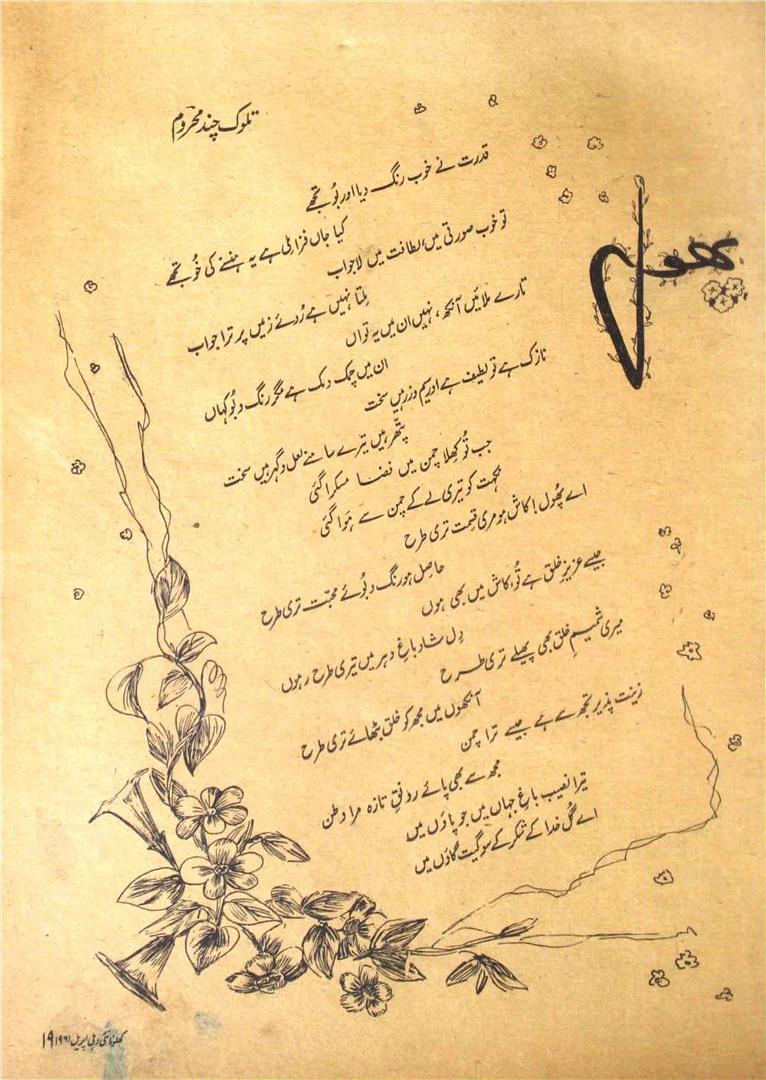 پھول
تلوک چند محروم
قدرت نے خوب رنگ دیا اور بُو تجھے
کیا جاں فزا ملی ہے یہ ہنسنے کی خُو تجھے
تو خوب صورتی میں، لطافت میں لاجواب
ملتا نہیں ہے رُوئے زمیں پر ترا جواب
تارے ملائیں آنکھ، نہیں ان میں یہ تواں
ان میں چمک دمک ہے مگر رنگ و بُو کہاں
نازک ہے تو لطیف ہے اور سیم و زر ہیں سخت
پتھر ہیں تیرے سامنے لعل و گہر ہیں سخت
جب تُو کھِلا چمن میں فضا مسکرا گئی
نکہت کو تیری لے کے چمن سے ہَوا گئی
اے پھُول! کاش ہو مری قسمت تری طرح
حاصل ہو رنگ و بُوئے محبّت تری طرح
جیسے عزیزِ خلق ہے تُو، کاش میں بھی ہوں
دِل شاد باغِ دہر میں تیری طرح رہوں
میری شمیمِ خلق بھی پھیلے تری طرح
آنکھوں میں مجھ کو خلق بٹھائے تری طرح
زینت پذیر تجھ سے ہے جیسے ترا چمن
مجھ سے بھی پائے رونقِ تازہ مرا وطن
تیرا نصیب باغِ جہاں میں جو پاؤں میں
اے گُل خدا کے شکر کے سو گیت گاؤں میں
کھلونا نئی دہلی اپریل ۱۹۶۱ ۱۹